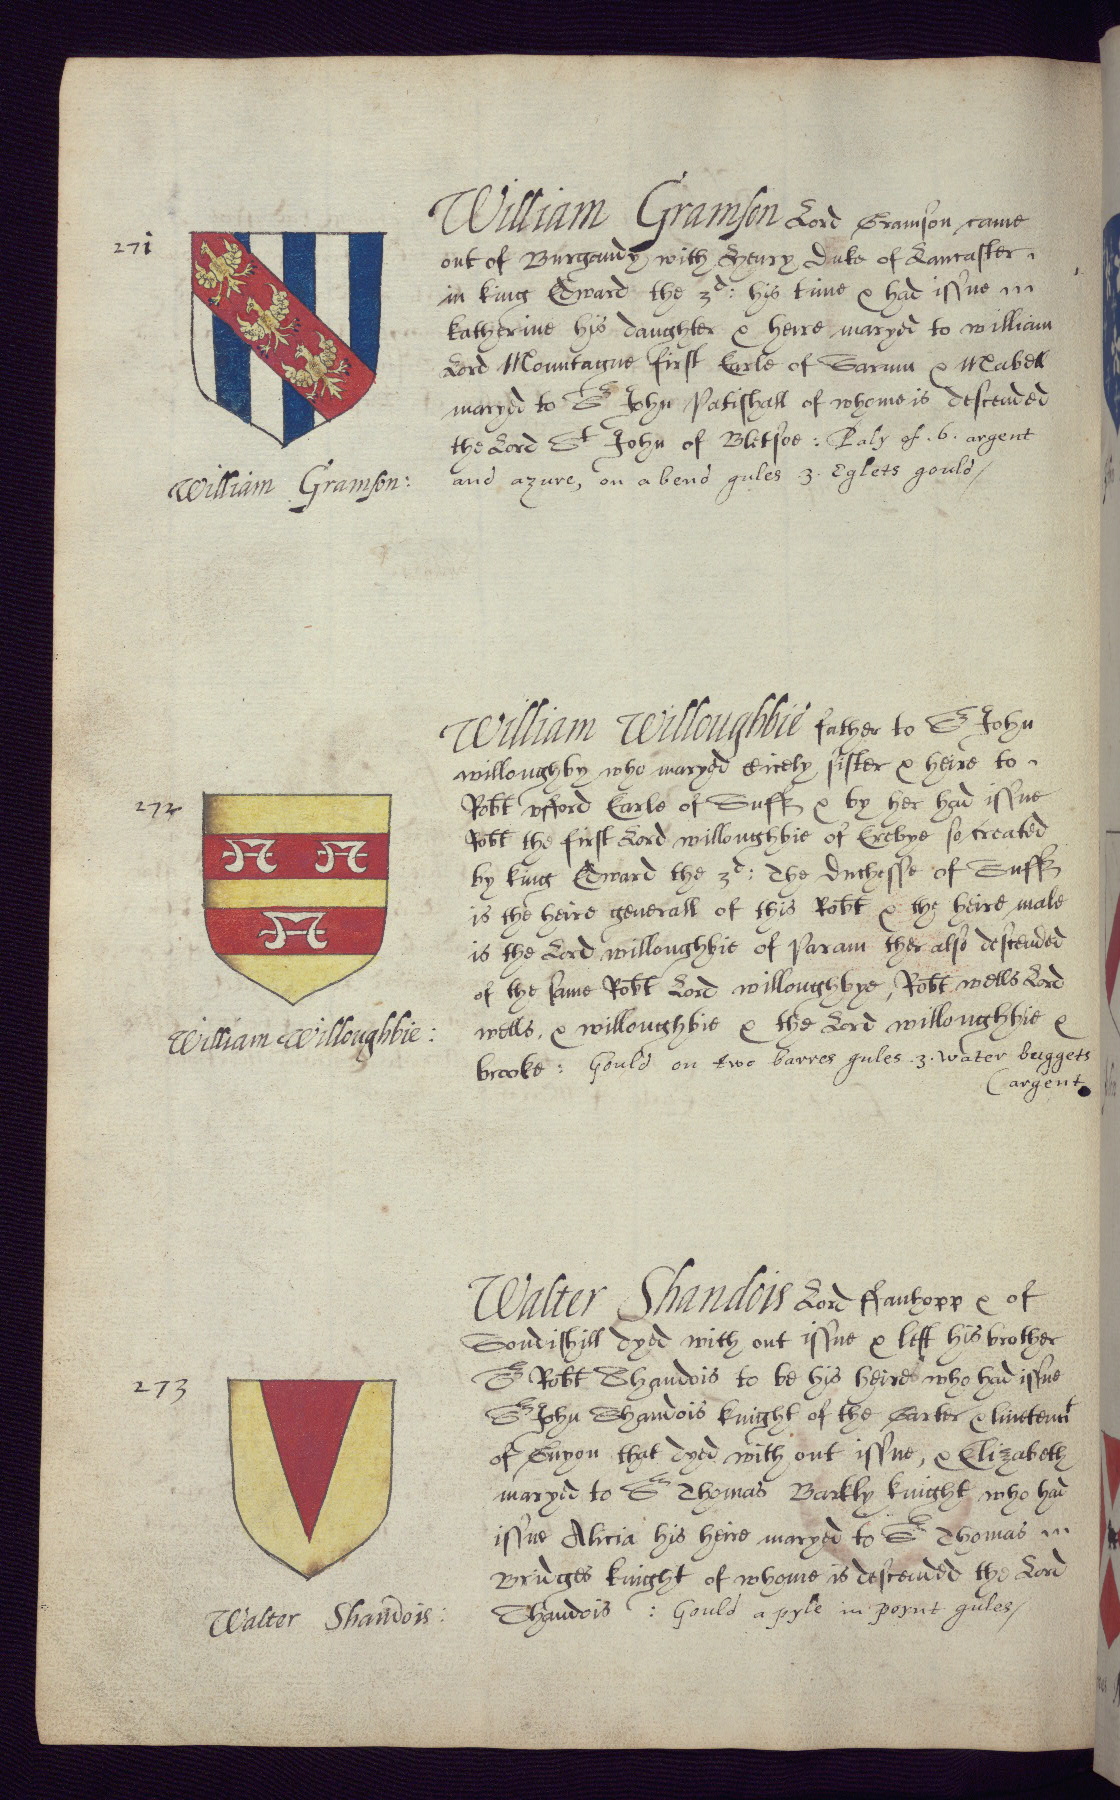 271
William Gramson Lord Gramson came
out of Burgandy with Henry Duke of Lancaster
in king Edward the 3d: his time & had issue
katherine his daughter & heire maryed to william
Lord Mountague first Earle of Sarum & Mabell
maryed to Sr John Patishall of whome is descended
the Lord St John of Bletsoe: Paly of .6. argent
and azure, on a bend gules 3. Eglets gould/
William Gramson:
272
William Willoughbie father to Sr John
willoughby who maryed Cicely sister & heire to
Robt Ufford Earle of Suff & by her had issue
Robt the first Lord willoughbie of Ersbye so created
by king Edward the 3d: The Duchesse of Suff
is the heire generall of this Robt & the heire male
is the Lord willoughbie of Param ther also descended
of the same Robt Lord willoughbye, Robt wells Lord
wells, & willoughbie & the Lord willoughbie &
brooke: Gould on two barres gules .3. water buggets
(argent.
William Willoughbie:
273
Walter Shandois Lord ffanhopp & of
Sondishill dyed with out issue & left his brother
Sr Robt Shandois to be his heire who had issue
Sr John Shandois knight of the Garter & liuetent
of Guyon that dyed with out issue, & Elizabeth
maryed to Sr Thomas Barkly knight who had
issue Alicia his heire maryed to Sr Thomas
Bridges knight of whome is descended the Lord
Shandois : Gould a pyle in poynt gules/
Walter Shandois: